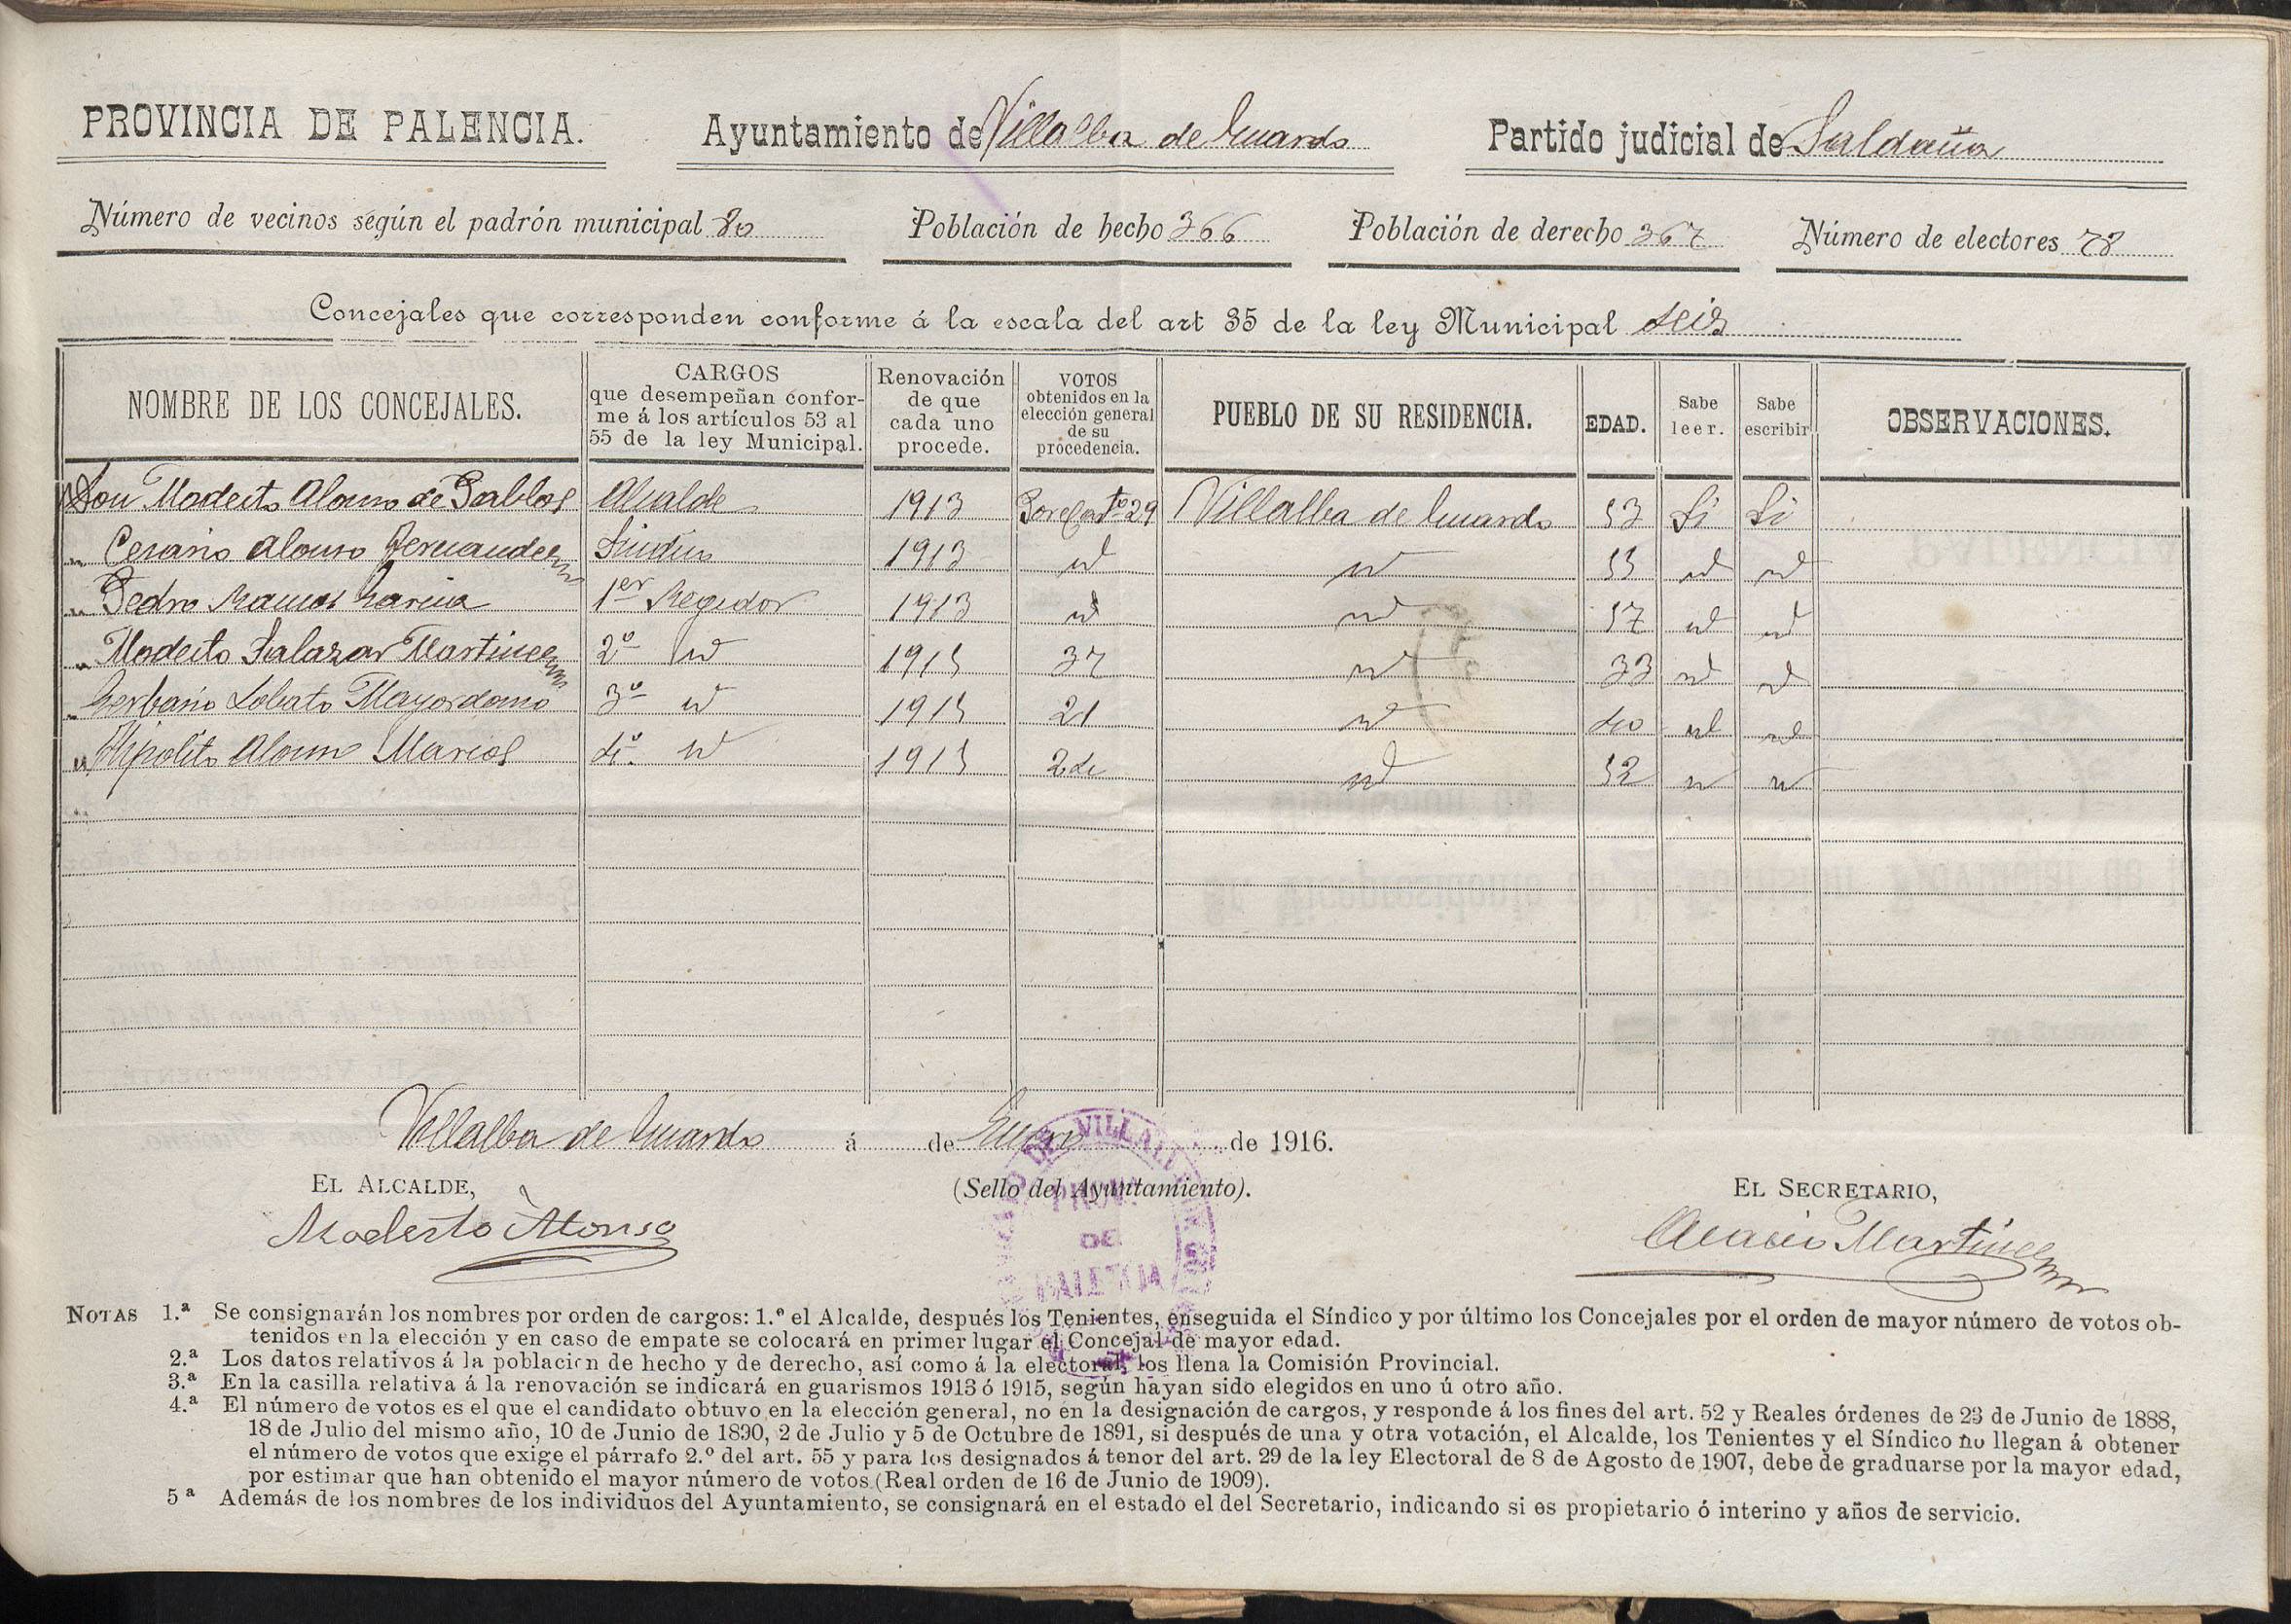 PROVINCIA DE PALENCIA. Ayuntamiento de Villalba de Guardo Partido judicial de Saldaña
Número de vecinos según el padrón municipal 80 Población de hecho 366 Población de derecho 367 Número de electores 78
Concejales que corresponden conforme á la escala del art 35 de la ley Municipal seis
NOMBRE DE LOS CONCEJALES. CARGOS que desempeñan conforme á los artículos 53 al 55 de la ley Municipal. Renovación de que cada uno procede. VOTOS obtenidos en la elección general de su procedencia. PUEBLO DE SU RESIDENCIA. EDAD. Sabe leer. Sabe escribir OBSERVACIONES.
Don Modesto Alonso de Pablos Alcalde 1913 Por el arto 29 Villalba de Guardo 53 Si Si
" Cesario Alonso Fernandez Sindico 1913 id id 55 id id
" Pedro Ramos Garcia 1er Regidor 1913 id id 57 id id
" Modesto Salazar Martinez 2º id 1915 37 id 33 id id
" Gerbasio Lobato Mayordomo 3º id 1915 21 id 40 id id
" Hipolito Alonso Marcos 4º id 1915 24 id 52 id id
Villalba de Guardo á de Enero de 1916.
EL ALCALDE, (Sello del Ayuntamiento). EL SECRETARIO,
Modesto Alonso Acacio Martinez
PROVA
DE
PALENCIA
NOTAS 1.ª Se consignarán los nombres por orden de cargos: 1.º el Alcalde, después los Tenientes, enseguida el Síndico y por último los Concejales por el orden de mayor número de votos ob-
tenidos en la elección y en caso de empate se colocará en primer lugar el Concejal de mayor edad.
2.ª Los datos relativos á la población de hecho y de derecho, así como á la electoral, los llena la Comisión Provincial.
3.ª En la casilla relativa á la renovación se indicará en guarismos 1913 ó 1915, según hayan sido elegidos en uno ú otro año.
4.ª El número de votos es el que el candidato obtuvo en la elección general, no en la designación de cargos, y responde á los fines del art. 52 y Reales órdenes de 23 de Junio de 1888,
18 de Julio del mismo año, 10 de Junio de 1890, 2 de Julio y 5 de Octubre de 1891, si después de una y otra votación, el Alcalde, los Tenientes y el Síndico no llegan á obtener
el número de votos que exige el párrafo 2.º del art. 55 y para los designados á tenor del art. 29 de la ley Electoral de 8 de Agosto de 1907, debe de graduarse por la mayor edad,
por estimar que han obtenido el mayor número de votos (Real orden de 16 de Junio de 1909).
5ª Además de los nombres de los individuos del Ayuntamiento, se consignará en el estado el del Secretario, indicando si es propietario ó interino y años de servicio.